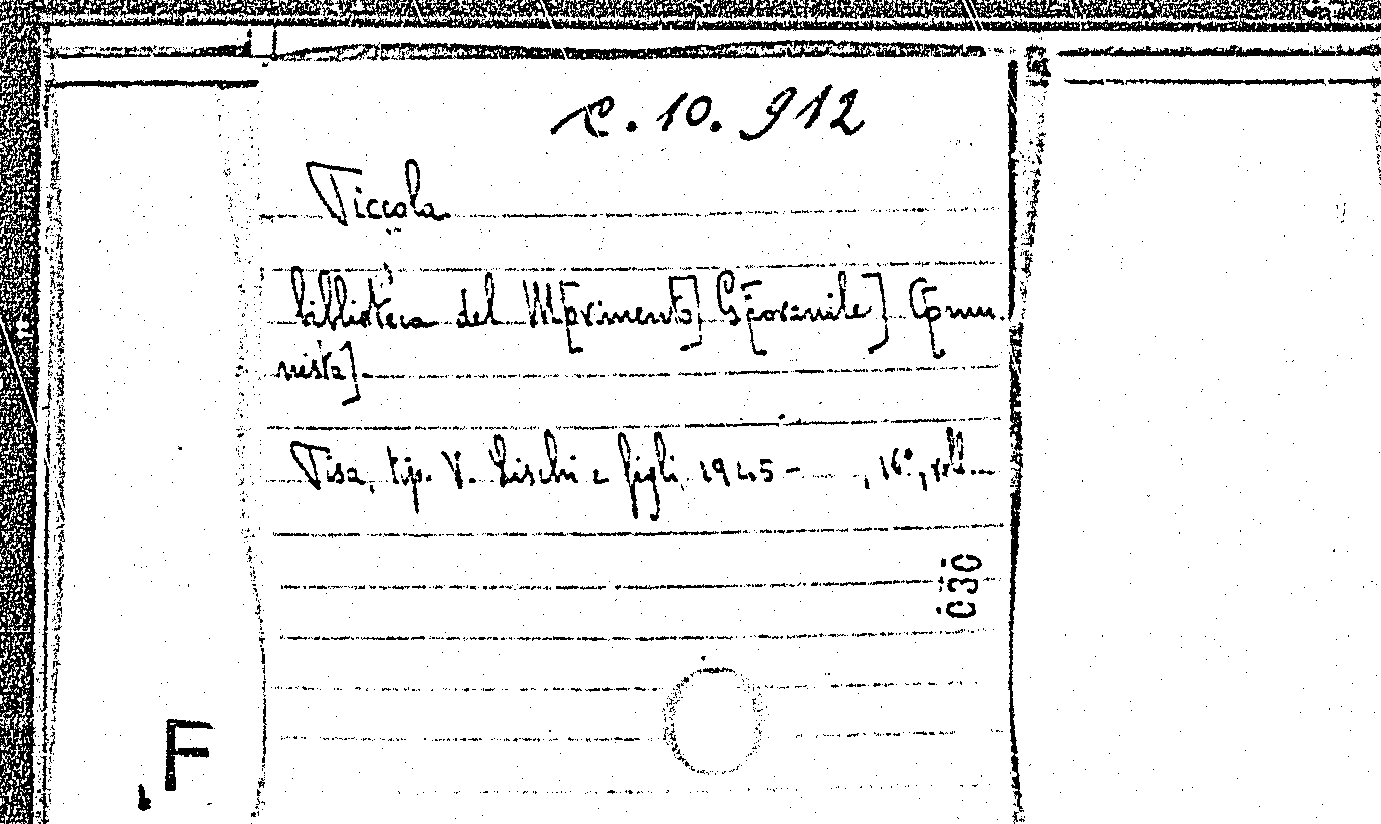 c. 10. 912
Piccola
biblioteca del M[ovimento] G[iovanile] Comu-
nista].
Pisa, tip. V. Lischi e figli, 1945 - , 16°, voll...
030
F